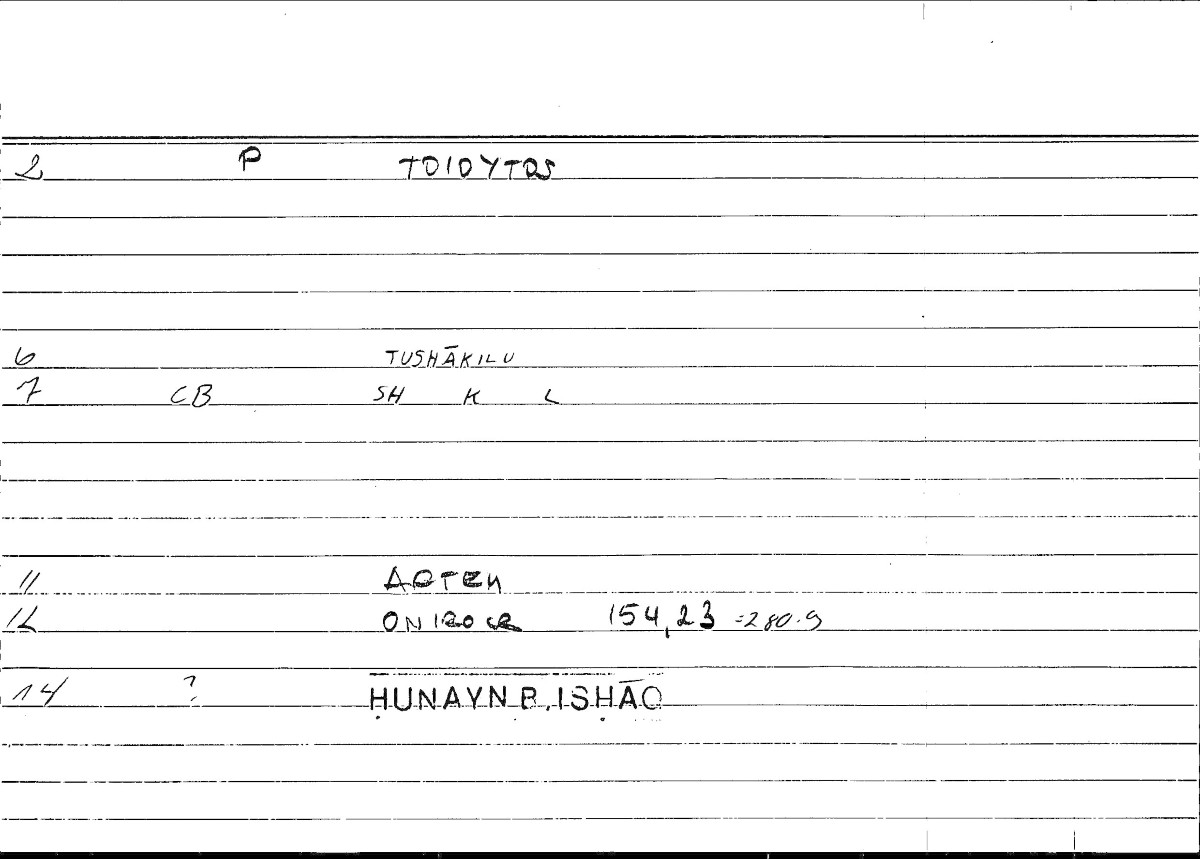 2 P TOIOYTOS
6 TUSHĀKILU
7 CB SH K L
11 ARTEM
12 ONIROCR 154,23 =280.9
14 ? ḤUNAYN B. ISḤĀQ